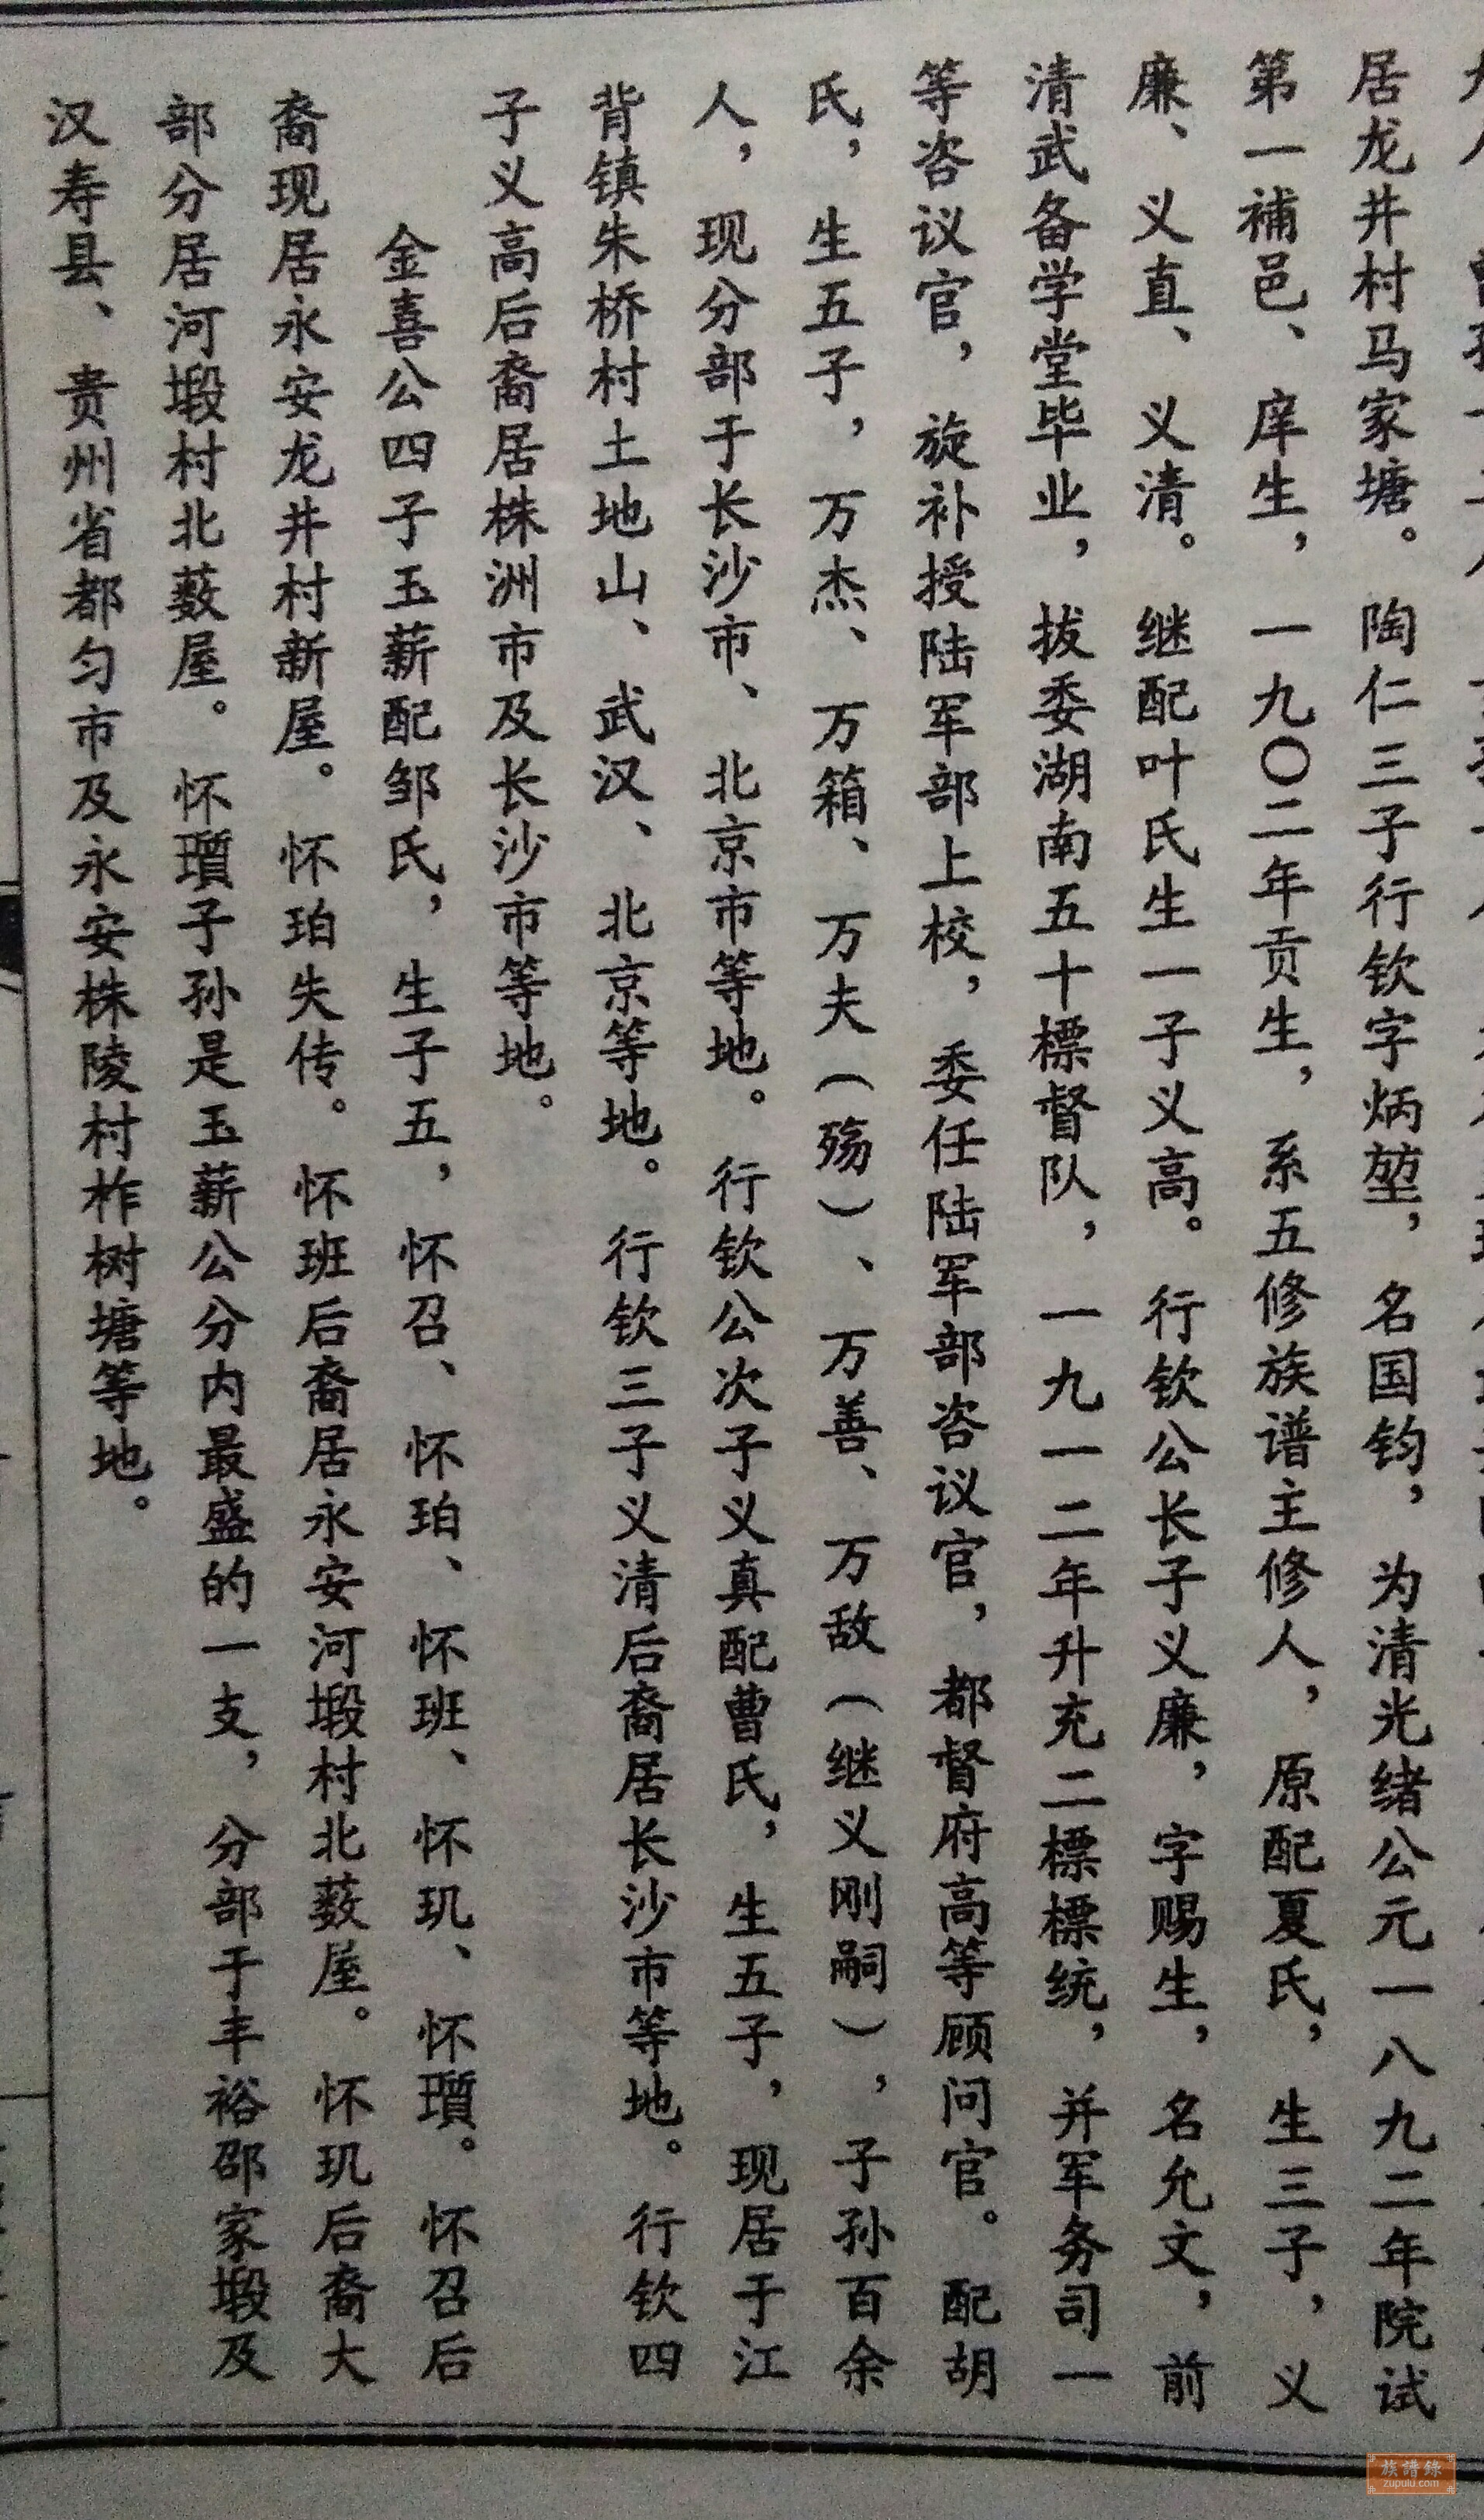 居龙井村马家塘。陶仁三子行钦字炳堃，名国钧，为清光绪公元一八九二年院试
第一補邑、庠生，一九〇二年贡生，系五修族谱主修人，原配夏氏，生三子，义
廉、义直、义清。继配叶氏生一子义高。行钦公长子义廉，字赐生，名允文，前
清武备学堂毕业，拔委湖南五十標督队，一九一二年升充二標標统，并军务司一
等咨议官，旋补授陆军部上校，委任陆军部咨议官，都督府高等顾问官。配胡
氏，生五子，万杰、万箱、万夫（殇）、万善、万敌（继义刚嗣），子孙百余
人，现分部于长沙市、北京市等地。行钦公次子义真配曹氏，生五子，现居于江
背镇朱桥村土地山、武汉、北京等地。行钦三子义清后裔居长沙市等地。行钦四
子义高后裔居株洲市及长沙市等地。
金喜公四子玉薪配邹氏，生子五，怀召、怀珀、怀班、怀玑、怀瓆。怀召后
裔现居永安龙井村新屋。怀珀失传。怀班后裔居永安河塅村北薮屋。怀玑后裔大
部分居河塅村北薮屋。怀瓆子孙是玉薪公分内最盛的一支，分部于丰裕邵家塅及
汉寿县、贵州省都匀市及永安株陵村柞树塘等地。
族譜錄
zupulu.com